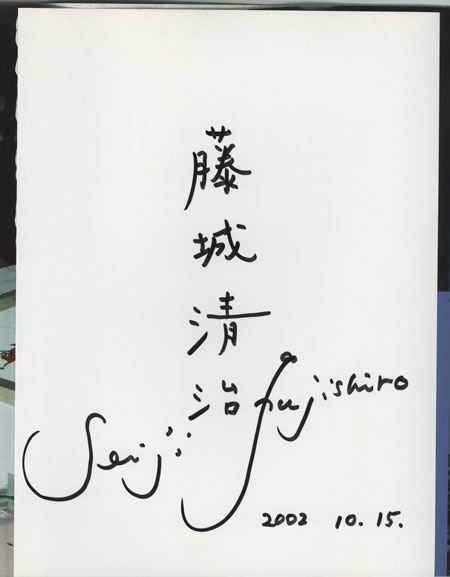 藤城清治
Seiji Fujishiro
2002 10.15.